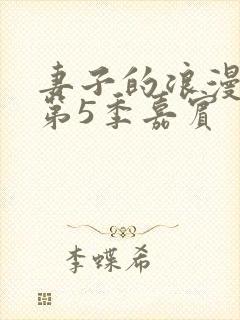 妻子的浪漫
第5季嘉宾
李蝶希